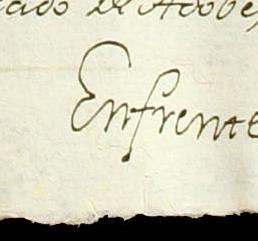 cado de Adobe
Enfrente